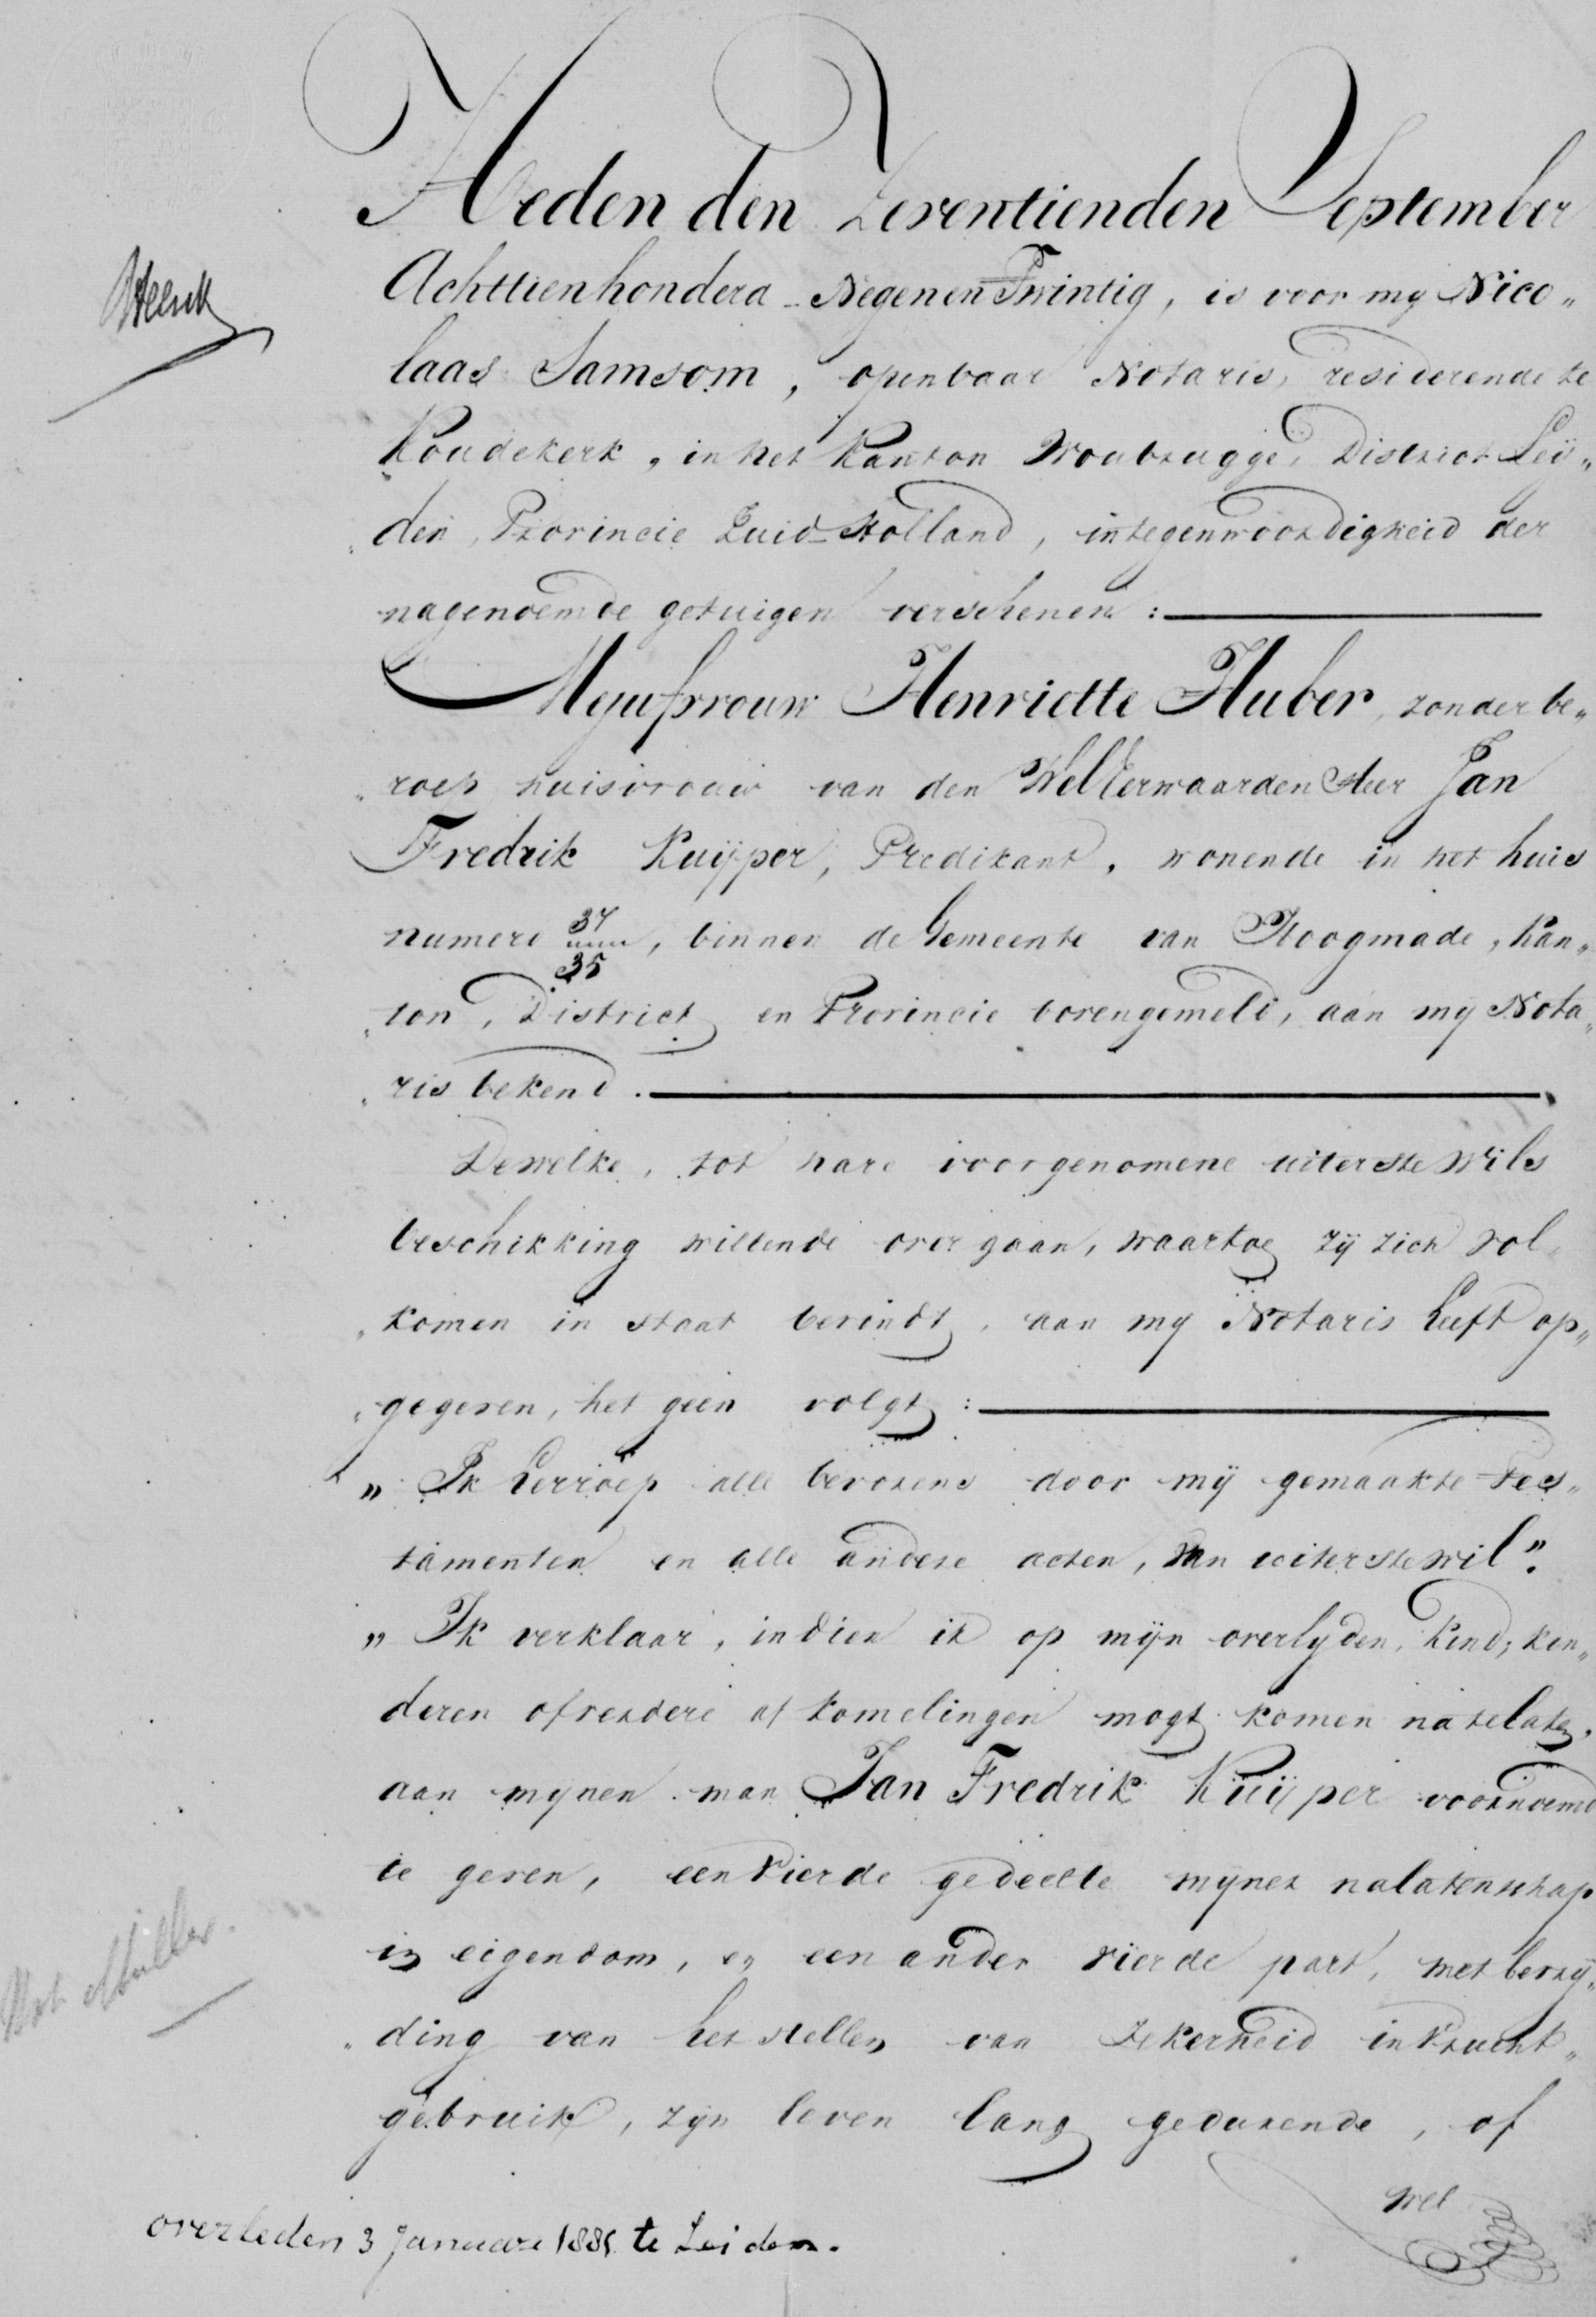 Heden den Zeventienden September
Achttienhonderd Negenen Twintig, is voor my Nico„
laas Samsom, openbaar Notaris, residerende te
Koudekerk, in het Kanton Woubrugge, District Leÿ„
„den, Provincie Zuid-Holland, in tegenwoordigheid der
nagenoemde getuigen verschenen:
Mejufvrouw Henriette Huber, zonder be„
„roep huisvrouw van den WelEerwaarden Heer Jan
Fredrik Kuÿper, Predikant, wonende in het huis
numero 34 35, binnen de Gemeente van Hoogmade, Kan„
„ton, District en Provincie bovengemeld, aan mÿ Nota„
„ris bekend.
Dewelke, tot hare voorgenomene uiterste Wils
beschikking willende overgaan, waartoe zÿ zich vol„
„komen in staat bevindt, aan my Notaris heeft op„
„gegeven, het geen volgt:
„ Ik herroep alle bevorens door mÿ gemaakte Tes„
tamenten en alle andere acten, van uitersten wil".
„ Ik verklaar, indien ik op mÿn overlyden, Kind, kin„
deren of verdere afkomelingen mogt komen natelaten,
aan mynen man Jan Fredrik Kuÿper voornoemd
te geven, een vierde gedeelte mynes nalatenschap
in eigendom, en een ander vierde part, met bevrÿ„
„ding van het stellen van zekerheid in Vrucht„
gebruik, zÿn leven lang gedurende, of
wel
overleden 3 Januari 188 te Leiden.